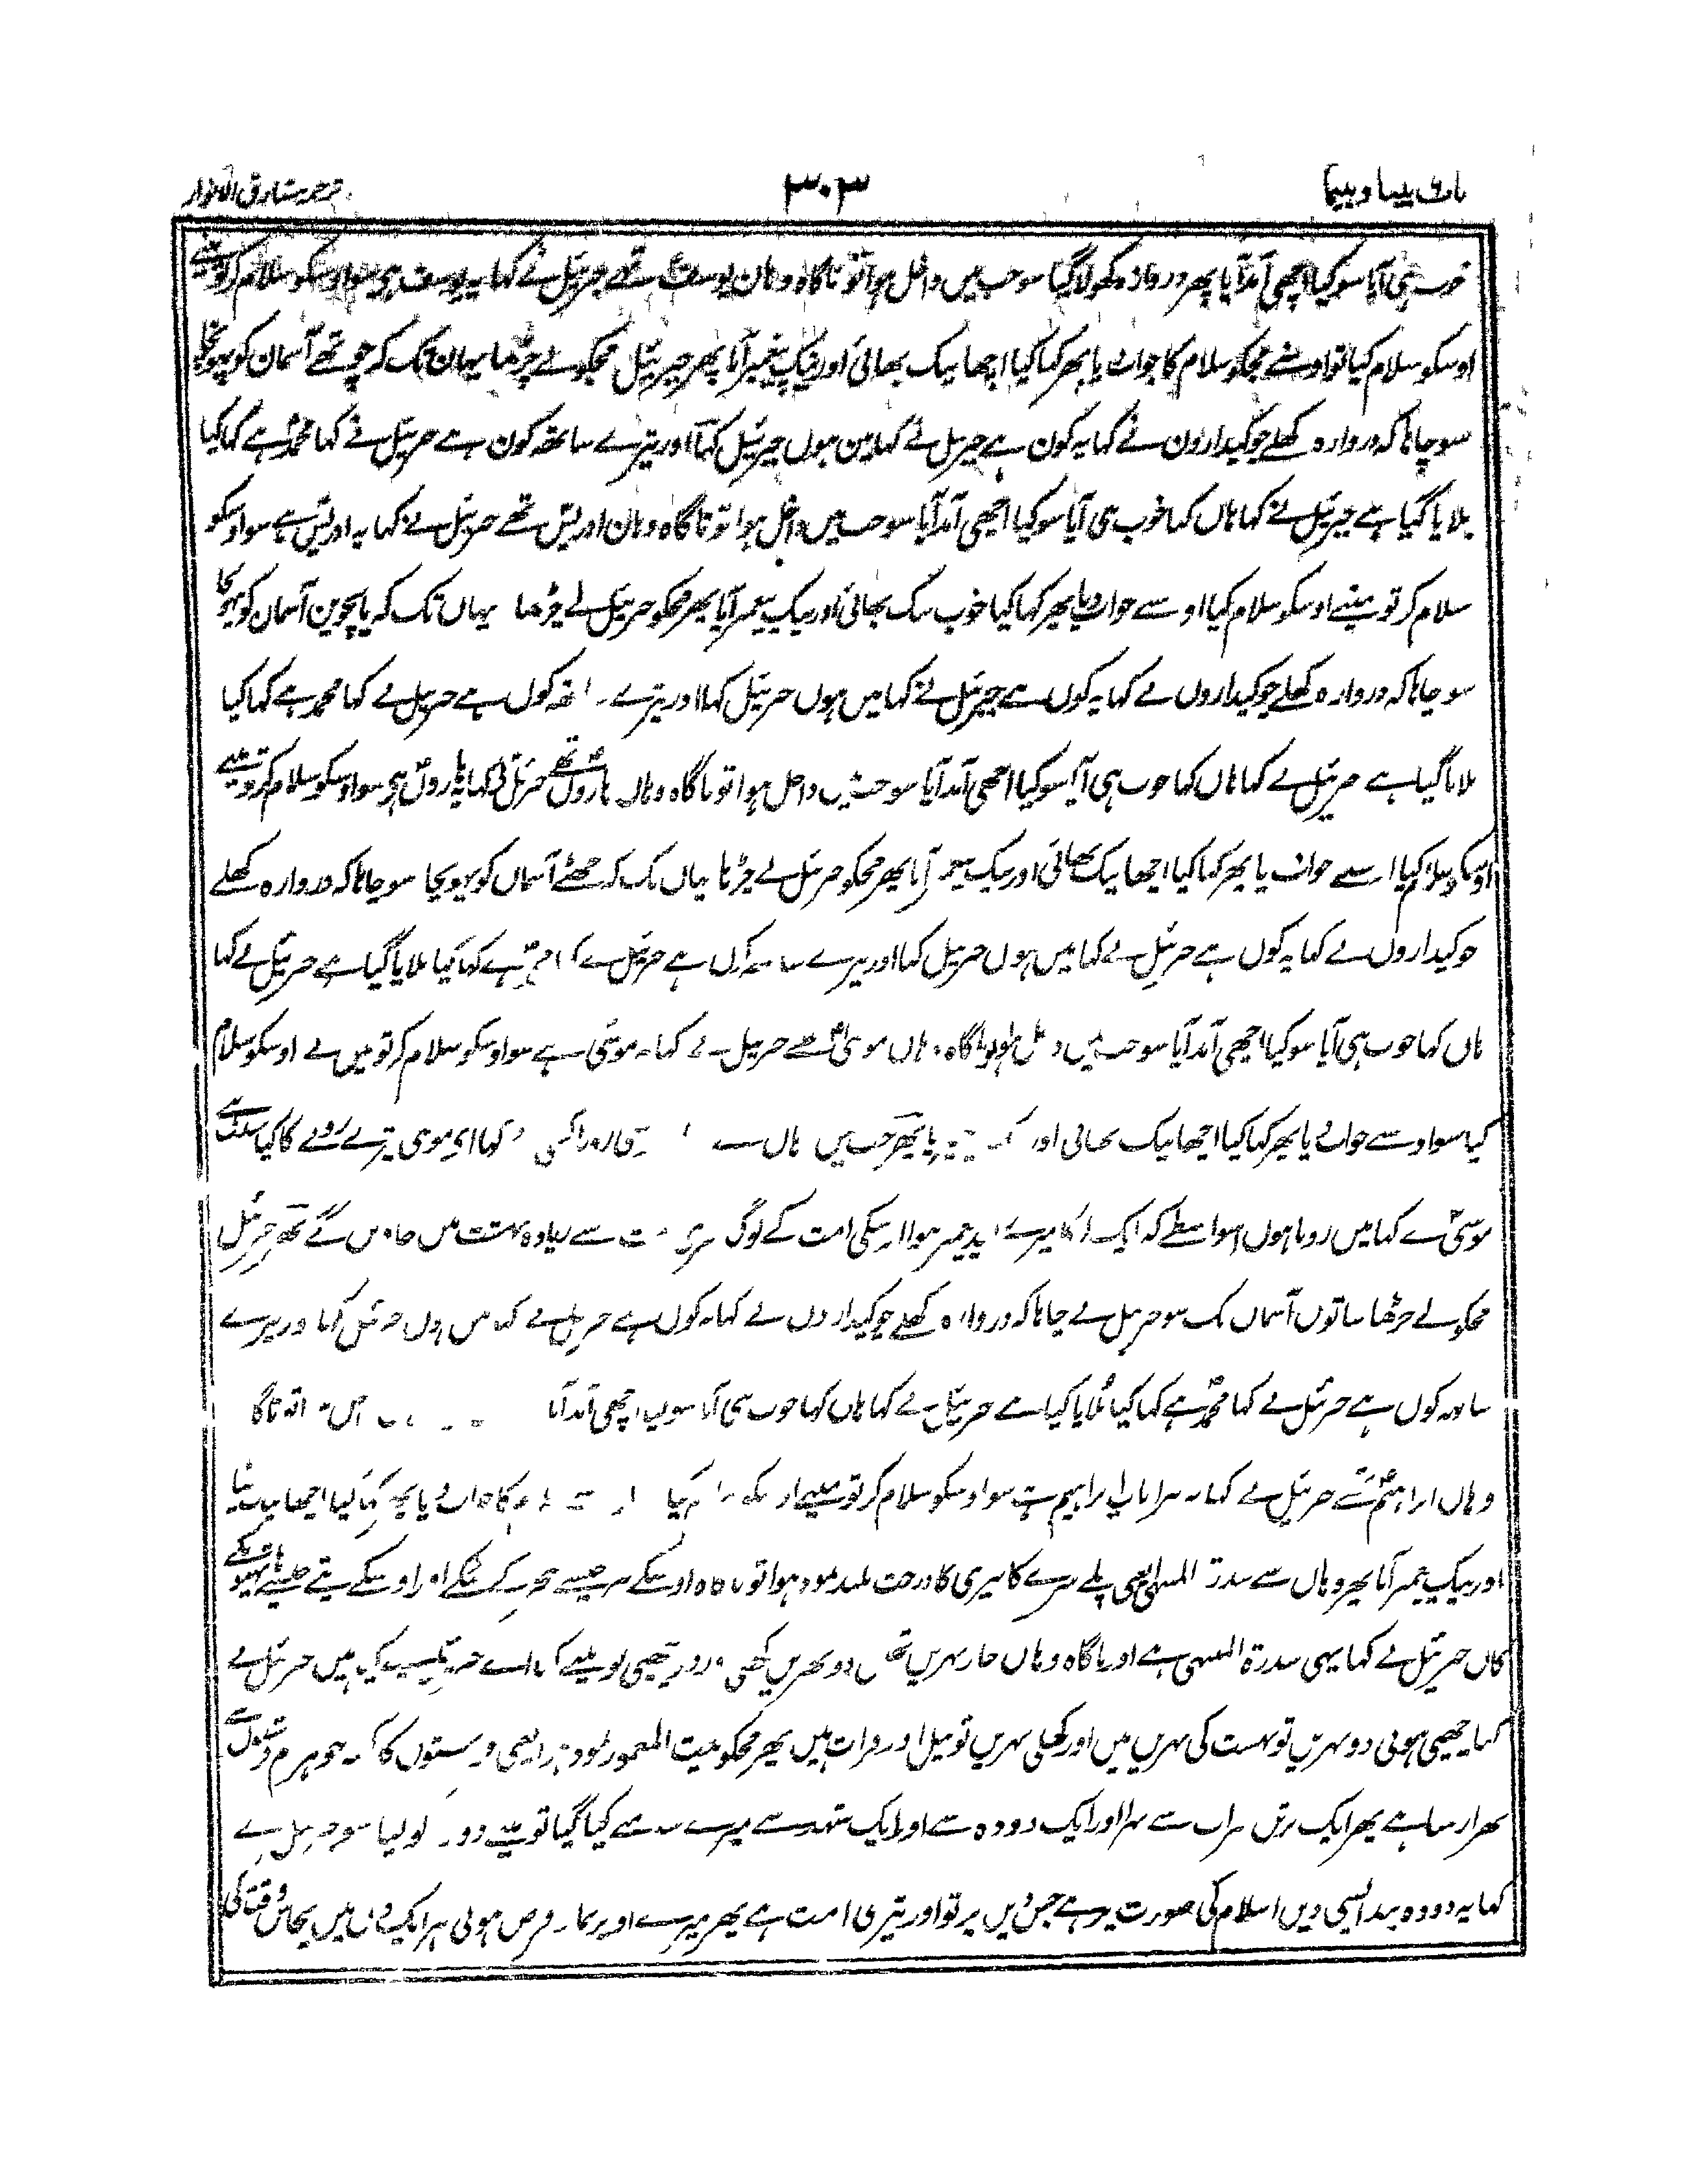 ۳۰۳
خوب ہی آیا سو کیا اچھی آمد آیا پھر دروازہ کھولا گیا سو جب میں داخل ہوا تو ناگاہ وہان یوسف تھے جبرئیل نے کہا یہ یوسف ہی سو اوسکو سلام کر تو مینے
اوسکو سلام کیا تو اوسنے مجکو سلام کا جواب یا پھر کہا کیا اچھا نیک بھائی اور نیک پیغمبر آیا پھر جبرئیل مجکو لے چڑھا یہان تک کہ چوتھے آسمان کو پہونچا
سو چاہا کہ دروازہ کھلے چوکیدارون نے کہا یہ کون ہے جبرئیل نے کہا مین ہوں جبرئیل کہا اور تیرے ساتھ کون ہے جبرئیل نے کہا محمد ہے کہا کیا
بلایا گیا ہے جبرئیل نے کہا ہاں کہا خوب ہی آیا سو کیا اچھی آمد آیا سو جب میں داخل ہوا تو ناگاہ وہان ادریس تھے جبرئیل نے کہا یہ ادریس ہے سو اوسکو
سلام کر تو مینے اوسکو سلام کیا اوسے جواب دیا پھر کہا کیا خوب نیک بھائی اور نیک پیغمبر آیا پھر مجکو جبرئیل لے چڑھا یہاں تک کہ پانچوین آسمان کو پہونچا
سو چاہا کہ دروازہ کھلے چوکیداروں نے کہا یہ کون ہے جبرئیل نے کہا میں ہوں جبرئیل کہا اور تیرے ساتھ کون ہے جبرئیل نے کہا محمد ہے کہا کیا
بلایا گیا ہے جبرئیل نے کہا ہاں کہا خوب ہی آیا سو کیا اچھی آمد آیا سو جب میں داخل ہوا تو ناگاہ وہاں ہارون تھے جبرئیل نے کہا یہ ہارون ہی سو اوسکو سلام کر تو مینے
اوسکو سلام کیا اوسنے جواب یا پھر کہا کیا اچھا نیک بھائی اور نیک پیغمبر آیا پھر مجکو جبرئیل لے چڑھا یہاں تک کہ چھٹے آسمان کو پہونچا سو چاہا کہ دروازہ کھلے
چوکیداروں نے کہا یہ کون ہے جبرئیل نے کہا میں ہوں جبرئیل کہا اور تیرے ساتھ کون ہے جبرئیل نے کہا محمد ہے کہا کیا بلایا گیا ہے جبرئیل نے کہا
ہاں کہا خوب ہی آیا سو کیا اچھی آمد آیا سو جب میں داخل ہوا تو ناگاہ وہاں موسیٰ تھے جبرئیل نے کہا یہ موسیٰ ہے سو اوسکو سلام کر تو میں نے اوسکو سلام
کیا سو اوسے جواب یا پھر کہا کیا اچھا نیک بھائی اور پھر جب میں کہا ای موسی تیرے رونے کا کیا سبب ہے
موسیٰ نے کہا میں روتا ہوں اسواسطے کہ ایک لڑکا میرے بعد پیغمبر ہوا اسکی امت کے لوگ میری امت سے زیادہ بہشت میں جاویں گے پھر جبرئیل
مجکو لے چڑھا ساتوں آسمان تک سو جبرئیل نے چاہا کہ دروازہ کھلے چوکیداروں نے کہا یہ کون ہے جبرئیل نے کہا میں ہوں جبرئیل کہا اور تیرے
ساتھ کون ہے جبرئیل نے کہا محمد ہے کہا کیا بلایا گیا ہے جبرئیل نے کہا ہاں کہا خوب ہی آیا سو کیا اچھی آمد آیا
وہاں ابراہیم تھے جبرئیل نے کہا یہ تیرا باپ ابراہیم ہے سو اوسکو سلام کر تو مینے کیا اچھا نیک بیٹا
اور نیک پیغمبر آیا پھر وہاں سے سدرۃ المنتہی یعنی پلے سرے کا بیری کا درخت بلند نمود ہوا تو ناگاہ اوسکے بیر جیسے ہجر کے مٹکے اور اوسکے پتے جیسے ہاتھیو نکے
کان جبرئیل نے کہا یہی سدرۃ المنتہی ہے اور ناگاہ وہاں چار نہریں تھیں دو نہریں کھلی دو چھپی تو مینے کہا اے جبرئیل یہ کیا ہیں جبرئیل نے
کہا یہ چھپی ہوئی دو نہریں تو بہشت کی نہریں ہیں اور کھلی نہریں تو نیل اور فرات ہیں پھر مجکو بیت المعمور نمود ہوا یعنی فرشتوں کا کعبہ جو ہر دم فرشتوں سے
بھرا رہتا ہے پھر ایک برتن شراب سے بھرا اور ایک دودہ سے اور ایک شہد سے میرے سامنے کیا گیا تو مینے دودہ کو لیا سو جبرئیل نے
کہا یہ دودہ پیدایشی دین اسلام کی صورت ہے جس دین پر تو اور تیری امت ہے پھر میرے اوپر نماز فرض ہوئی ہر ایک دن میں پچاس وقت کی